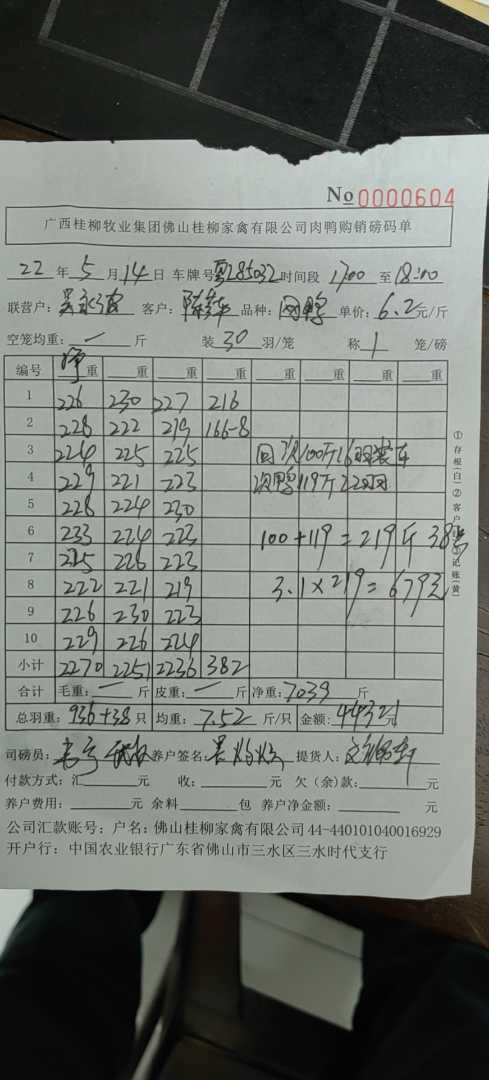 No 0000604
广西桂柳牧业集团佛山桂柳家禽有限公司肉鸭购销磅码单
22 年 5 月 14 日 车牌号 粤E85032 时间段 17:00 至 18:00
联营户: 客户: 品种: 肉鸭 单价: 6.2 元/斤
空笼均重: 一 斤 装 30 羽/笼 称 1 笼/磅
编号 净重 重 重 重 重 重 重 重
1 226 230 227 216
2 228 222 219 166-8
3 224 225 225 回次100斤16羽装车
4 229 221 223 次鸭119斤22羽
5 228 224 230
6 233 224 223 100+119=219斤 38
7 225 226 223
8 222 221 219 3.1×219=679元
9 226 230 223
10 229 226 224
小计 2270 2251 2236 382
合计 毛重: 一 斤 皮重: 一 斤 净重: 7039 斤
总羽重: 936+38 只 均重: 7.52 斤/只 金额: 44321元
司磅员: 养户签名: 提货人:
付款方式: 汇 元 收: 元 欠(余)款: 元
养户费用: 元 余料 包 养户净金额: 元
公司汇款账号: 户名: 佛山桂柳家禽有限公司 44-440101040016929
开户行: 中国农业银行广东省佛山市三水区三水时代支行
①存根(白)②客户 记账(黄)